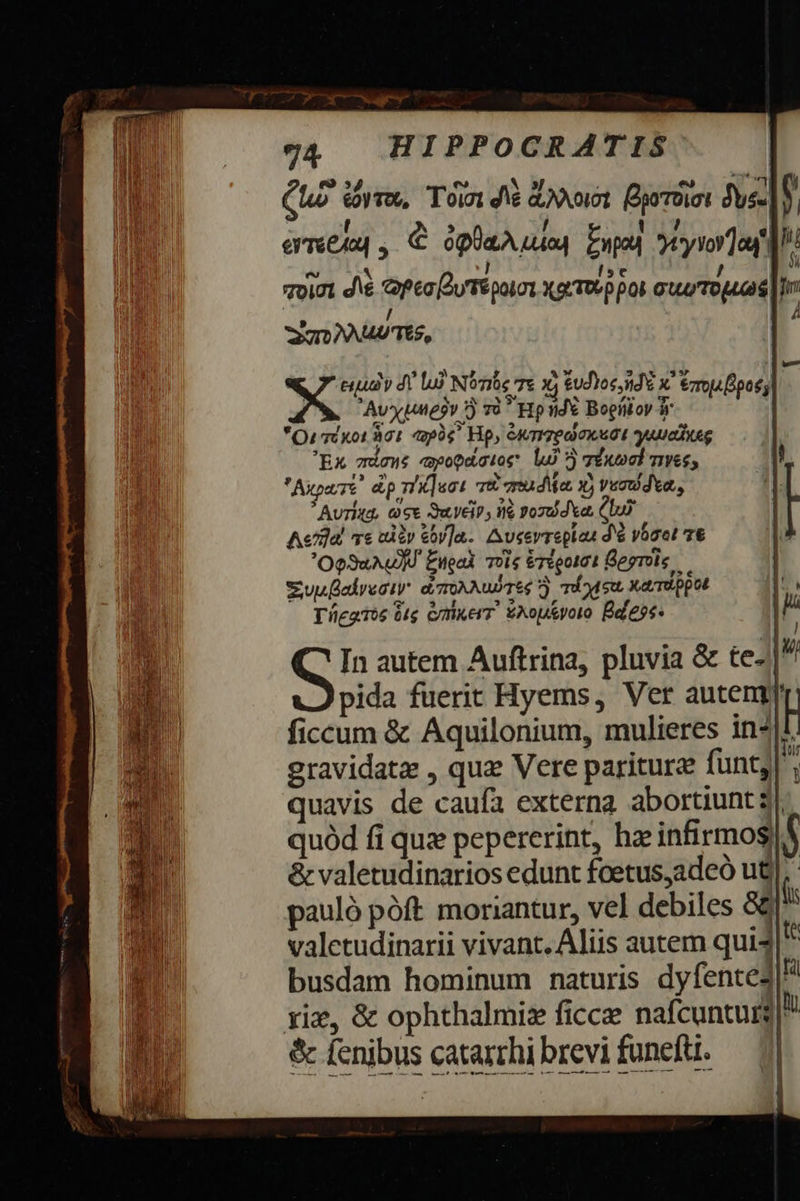 74 HIPPOCRATIS
ζῆν ἐόντα. Τοῖσι δὲ ἄλλοισι βροτοῖσι δυσ-
εντερίαι, & ὀφθαλμίαι ξηραὶ γίγνονται
τοῖσι δὲ πρεσβυτέροισι κατάρροι συντόμως
ἀπολλύντες.
ειμὼν δ' ἢν Νότιός τε καὶ εὔδιος, ἠδὲ κ' ἔπομβρος,
Αὐχμηρὸν δὲ τὸ Ἦρ ἠδὲ Βορήϊον ᾖ·
Ὅι τόκοι ᾗσι πρὸς Ἦρ, ἐκτιτρώσκουσι γυναῖκες
Ἐκ πάσης προφάσιος· ἢν δὲ τέκωσί τινες,
Ἀκρατέ' ἂρ τίκτουσι τὰ παιδία καὶ νοσώδεα,
Αὐτίκα ὥστε θανεῖν, ἠὲ νοσώδεα ζῆν
Λεπτά τε αἰὲν ἐόντα. Δυσεντερίαι δὲ νόσοι τε
Ὀφθαλμῶν ξηραὶ τοῖς ἑτέροισι βροτοῖς
Συμβαίνουσιν· ἀπολλύντες δὲ τάχιστα κατάρροι
Γήραος οἷς ἐπίκειτ' οὐλομένοιο βάρος.
SIn autem Auſtrina, pluvia & te-
pida fuerit Hyems, Ver autem
ſiccum & Aquilonium, mulieres in-
gravidatæ, quæ Vere parituræ ſunt,
quavis de cauſa externa abortiunt:
quòd ſi quæ pepererint, hæ infirmos
& valetudinarios edunt fœtus, adeò ut
paulò pòſt moriantur, vel debiles &
valetudinarii vivant. Aliis autem qui-
busdam hominum naturis dyſente-
riæ, & ophthalmiæ ſiccæ naſcuntur:
& ſenibus catarrhi brevi funeſti.